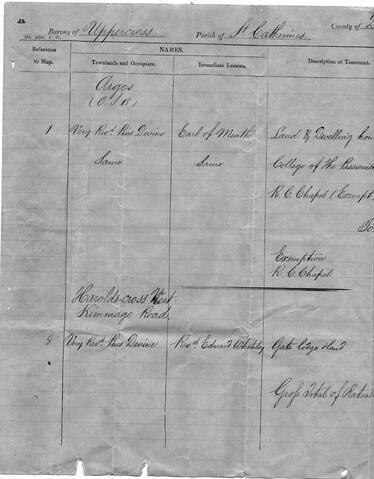 Barony of Uppercross Parish of St. Catherines County of
Reference to Map.
NAMES.
Townlands and Occupiers.
Immediate Lessors.
Description of Tenement.
Argos
(O.S. 18)
1 Very Revd. Pius Devine Earl of Meath Land & Dwelling hou
Same Same College of the Passionis
R.C. Chapel (Exempt)
To
Exemption
R.C. Chapel
Harolds-cross West
Kimmage Road
8 Very Revd. Pius Devine Revd. Edward Whiteley Gate lodge & land
Gross Total of Rateab